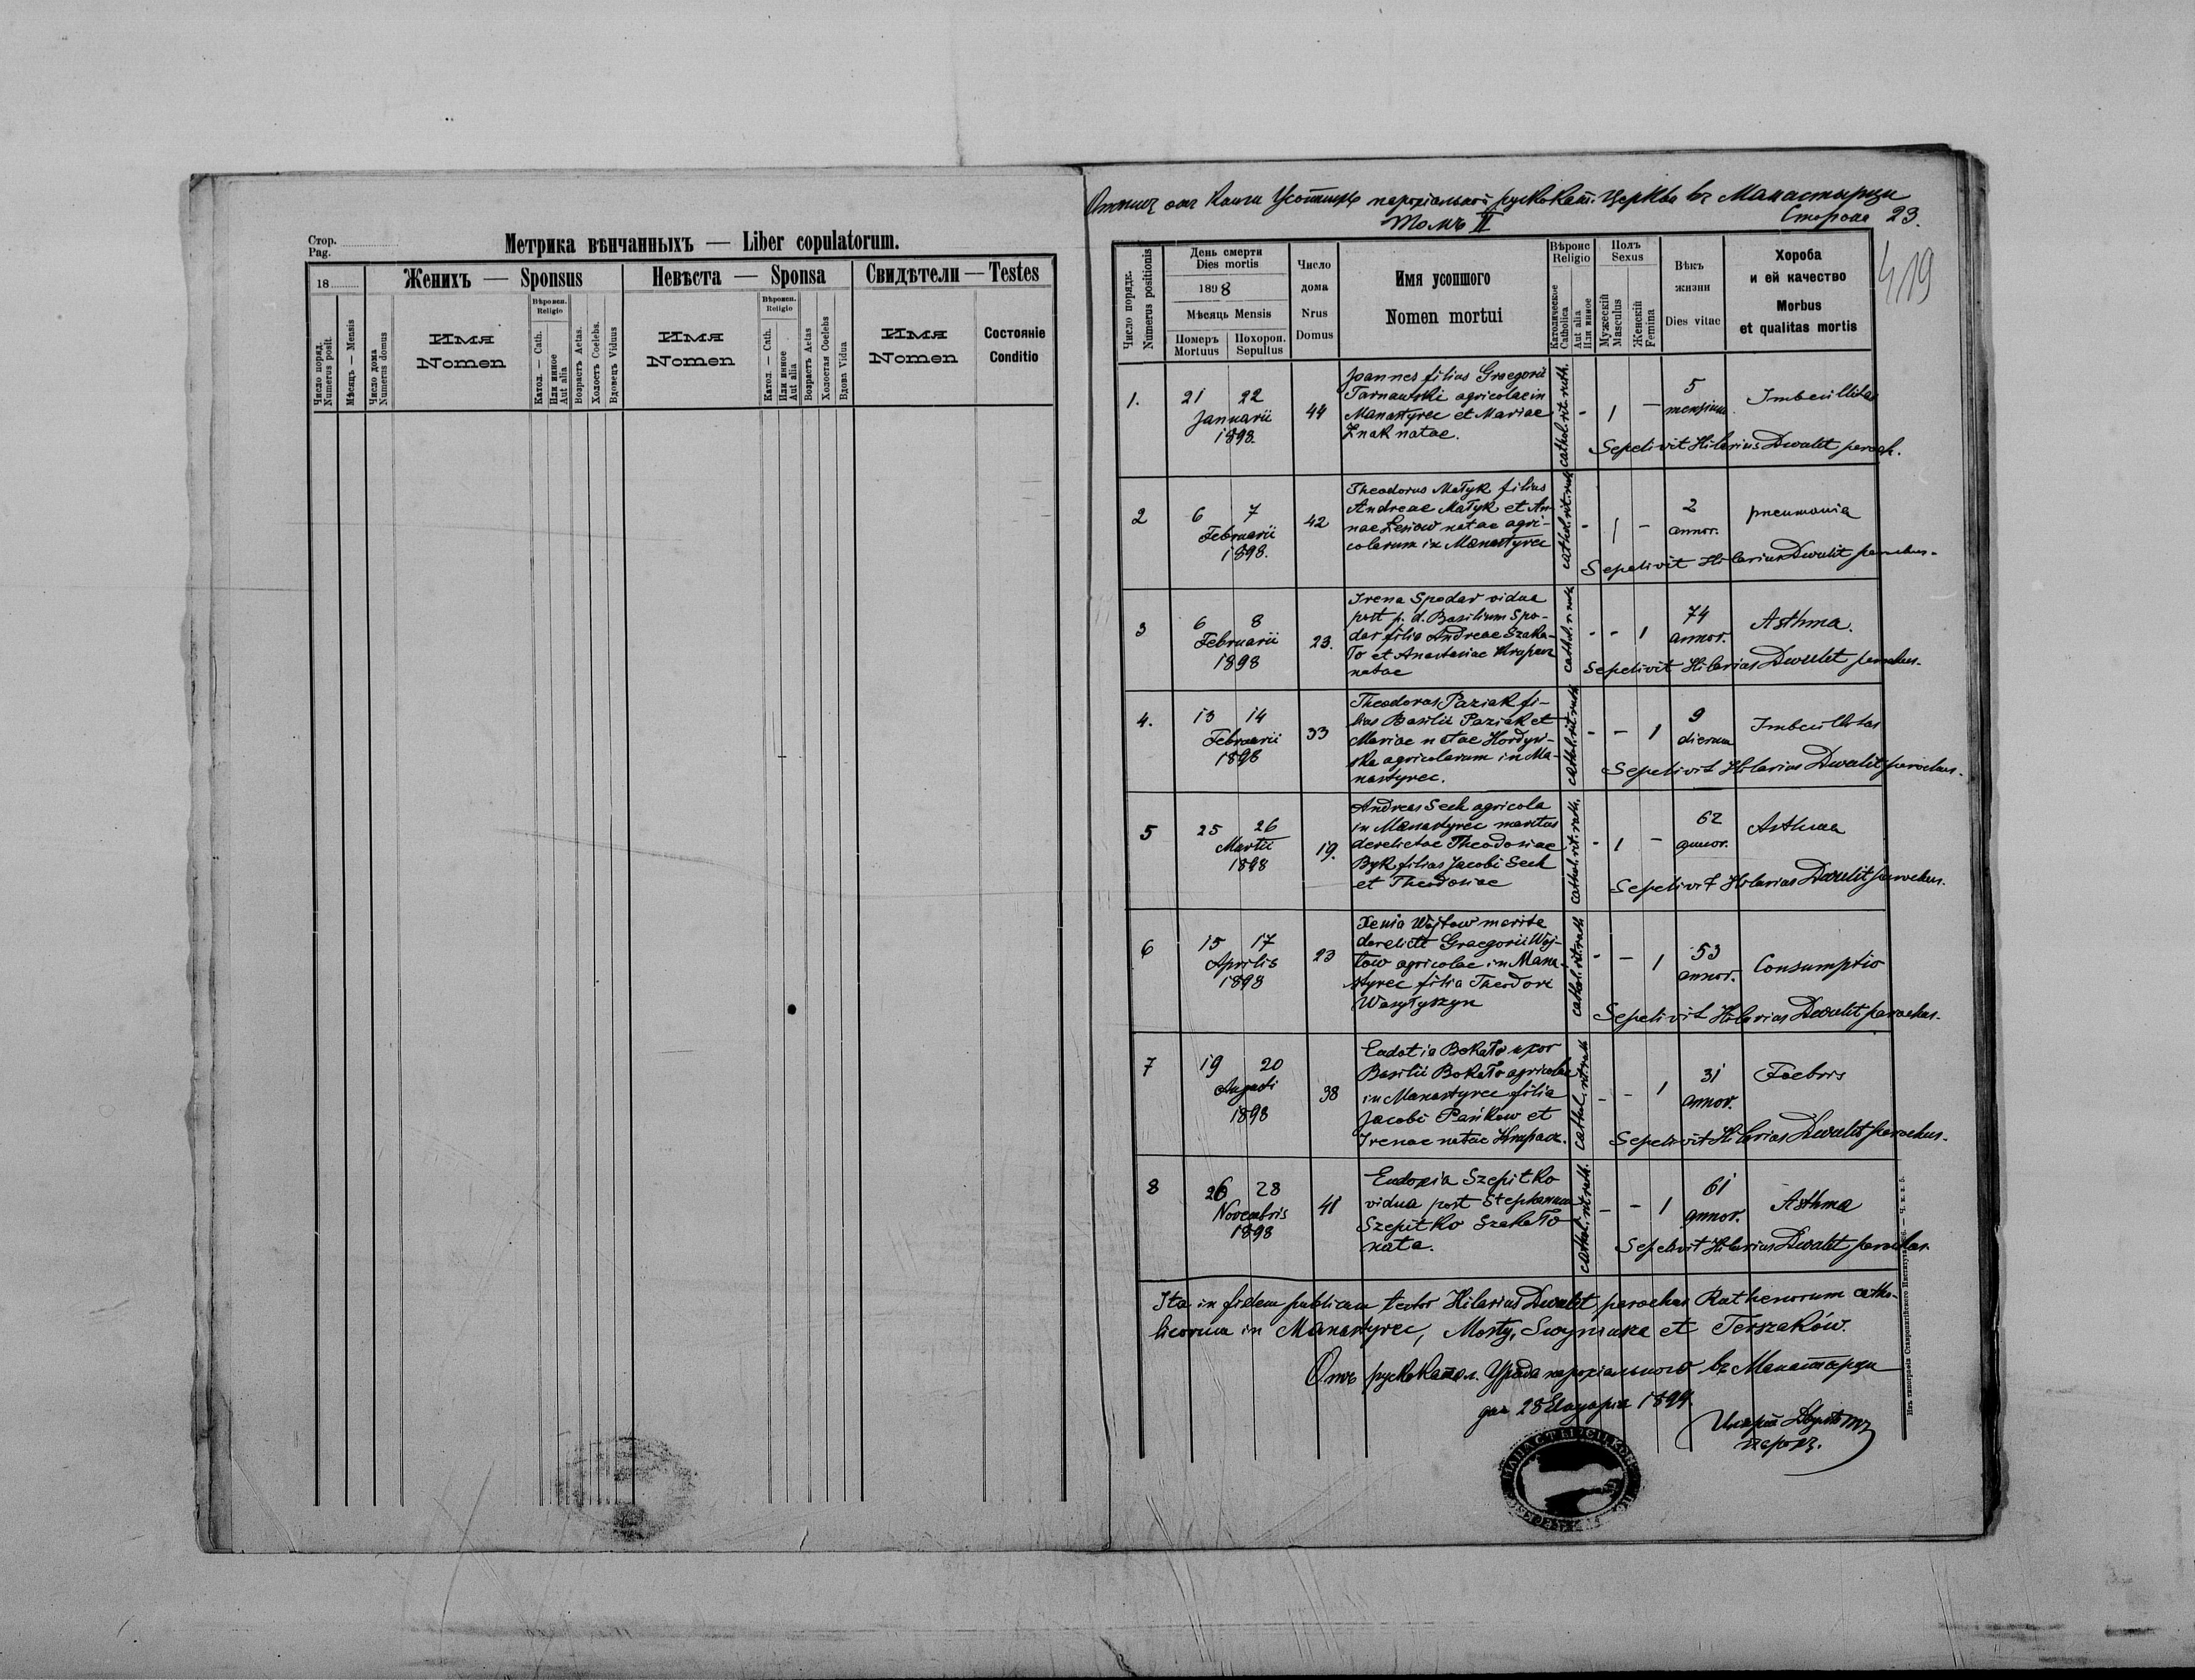 Стор.
Pag.
Метрика вѣнчанныхъ — Liber copulatorum.
18
Женихъ — Sponsus
Невѣста — Sponsa
Свидѣтели — Testes
Число поряд.
Numerus posit.
Мѣсяцъ — Mensis
Число дома
Numerus domus
Имя
Nomen
Вѣроисп.
Religio
Катол. — Cath.
Или иное
Aut alia
Возрастъ Aetas.
Холостъ Coelebs.
Вдовецъ Viduus
Имя
Nomen
Вѣроисп.
Religio
Катол. — Cath.
Или иное
Aut alia
Возрастъ Aetas
Холостая Coelebs
Вдова Vidua
Имя
Nomen
Состояніе
Conditio
парохіальной рускокат. Церкви въ Манастырци
Томъ II
Сторона 23.
419
Число порядк.
Numerus positionis
День смерти
Dies mortis
1898
Мѣсяць Mensis
Померъ
Mortuus
Похорон.
Sepultus
Число
дома
Nrus
Domus
Имя усопшого
Nomen mortui
Вѣроис
Religio
Католическое
Catholica
Aut alia
Или иное
Полъ
Sexus
Мужескій
Masculus
Женскій
Femina
Вѣкъ
жизни
Dies vitae
Хороба
и ей качество
Morbus
et qualitas mortis
1.
21 22
Januarii
1898.
44
Joannes filius Graegorii
Tarnawski agricolae in
Manastyrec et Mariae
Znak natae.
cathol. rit. ruth.
- 1 -
5
mensium
Imbecillitas
Sepelivit Hilarius Dwulit paroch.
2
6 7
Februarii
1898.
42
Theodorus Małyk filius
Andreae Małyk et An-
nae Lesiow natae agri-
colarum in Manastyrec
cathol. rit. ruth.
- 1 -
2
annor.
pneumonia
Sepelivit Hilarius Dwulit parochus.
3
6 8
Februarii
1898
23.
Irena Spodar vidua
post p. d. Basilium Spo-
dar filia Andreae Szaka-
ło et Anastasiae Hrapacz
natae
cathol. r. ruth.
- - 1
74
annor.
Asthma.
Sepelivit Hilarius Dwulit parochus.
4.
13 14
Februarii
1898
33
Theodorus Paziak fi-
lius Basilii Paziak et
Mariae natae Hordyń-
ska agricolarum in Ma-
nastyrec.
cathol. rit. ruth.
- - 1
9
dierum
Imbecillitas
Sepelivit Hilarius Dwulit parochus.
5
25 26
Martii
1898
19.
Andreas Sech agricola
in Manastyrec maritus
derelictae Theodosiae
Byk filius Jacobi Sech
et Theodosiae
cathol. rit. ruth.
- 1 -
62
annor.
Asthma
Sepelivit Hilarius Dwulit parochus.
6
15 17
Aprilis
1898
23
Xenia Wojtow marita
derelicti Graegorii Woj-
tow agricolae in Mana-
styrec filia Theodori
Wasyłyszyn
cathol. rit. ruth
- - 1
53
annor.
Consumptio
Sepelivit Hilarius Dwulit parochus.
7
19 20
Augusti
1898
38
Eudotia Bokało uxor
Basilii Bokało agricolae
in Manastyrec filia
Jacobi Pańkow et
Irenae natae Hrapacz.
cathol. rit. ruth
- - 1
31
annor.
Faebris
Sepelivit Hilarius Dwulit parochus.
8
26 28
Novembris
1898
41
Eudoxia Szepitko
vidua post Stephanum
Szepitko Szakało
nata.
cathol. rit. ruth.
- - 1
61
annor.
Asthma
Sepelivit Hilarius Dwulit parochus.
Ita in fidem publicam testor Hilarius Dwulit parochus Ruthenorum catho-
licorum in Manastyrec, Mosty, et Terszaków.
Отъ рускокатол. Уряда парохіального въ Манастырци
дня 28 Януарія 1899.
Иларій Двулѣтъ
парохъ.